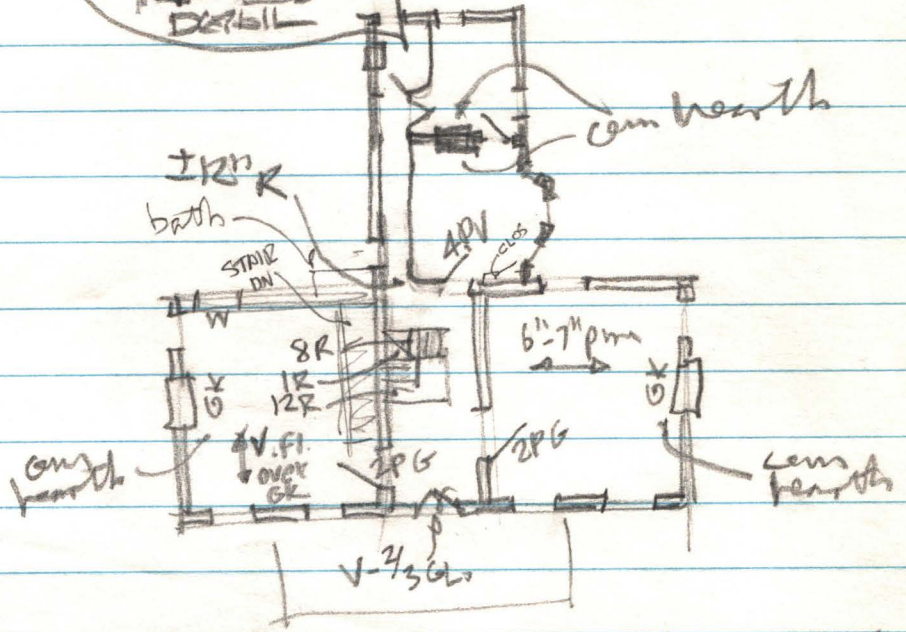 DETAIL
cem hearth
±12" R
bath
STAIR
DN
4PV
CLOS
W
8R
1R
12R
6"-7" pine
GK
GK
V.Fl.
over
GK
2PG
2PG
cem
hearth
cem
hearth
V-2/3 GL.